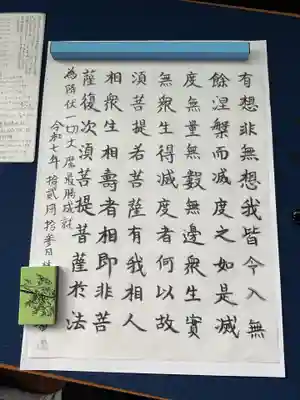 有想非無想我皆令入無
餘涅槃而滅度之如是滅
度無量無數無邊衆生實
無衆生得滅度者何以故
須菩提若菩薩有我相人
相衆生相壽者相即非菩
薩復次須菩提菩薩於法
為降伏一切大魔最勝成就
令和七年拾貳月拾参日